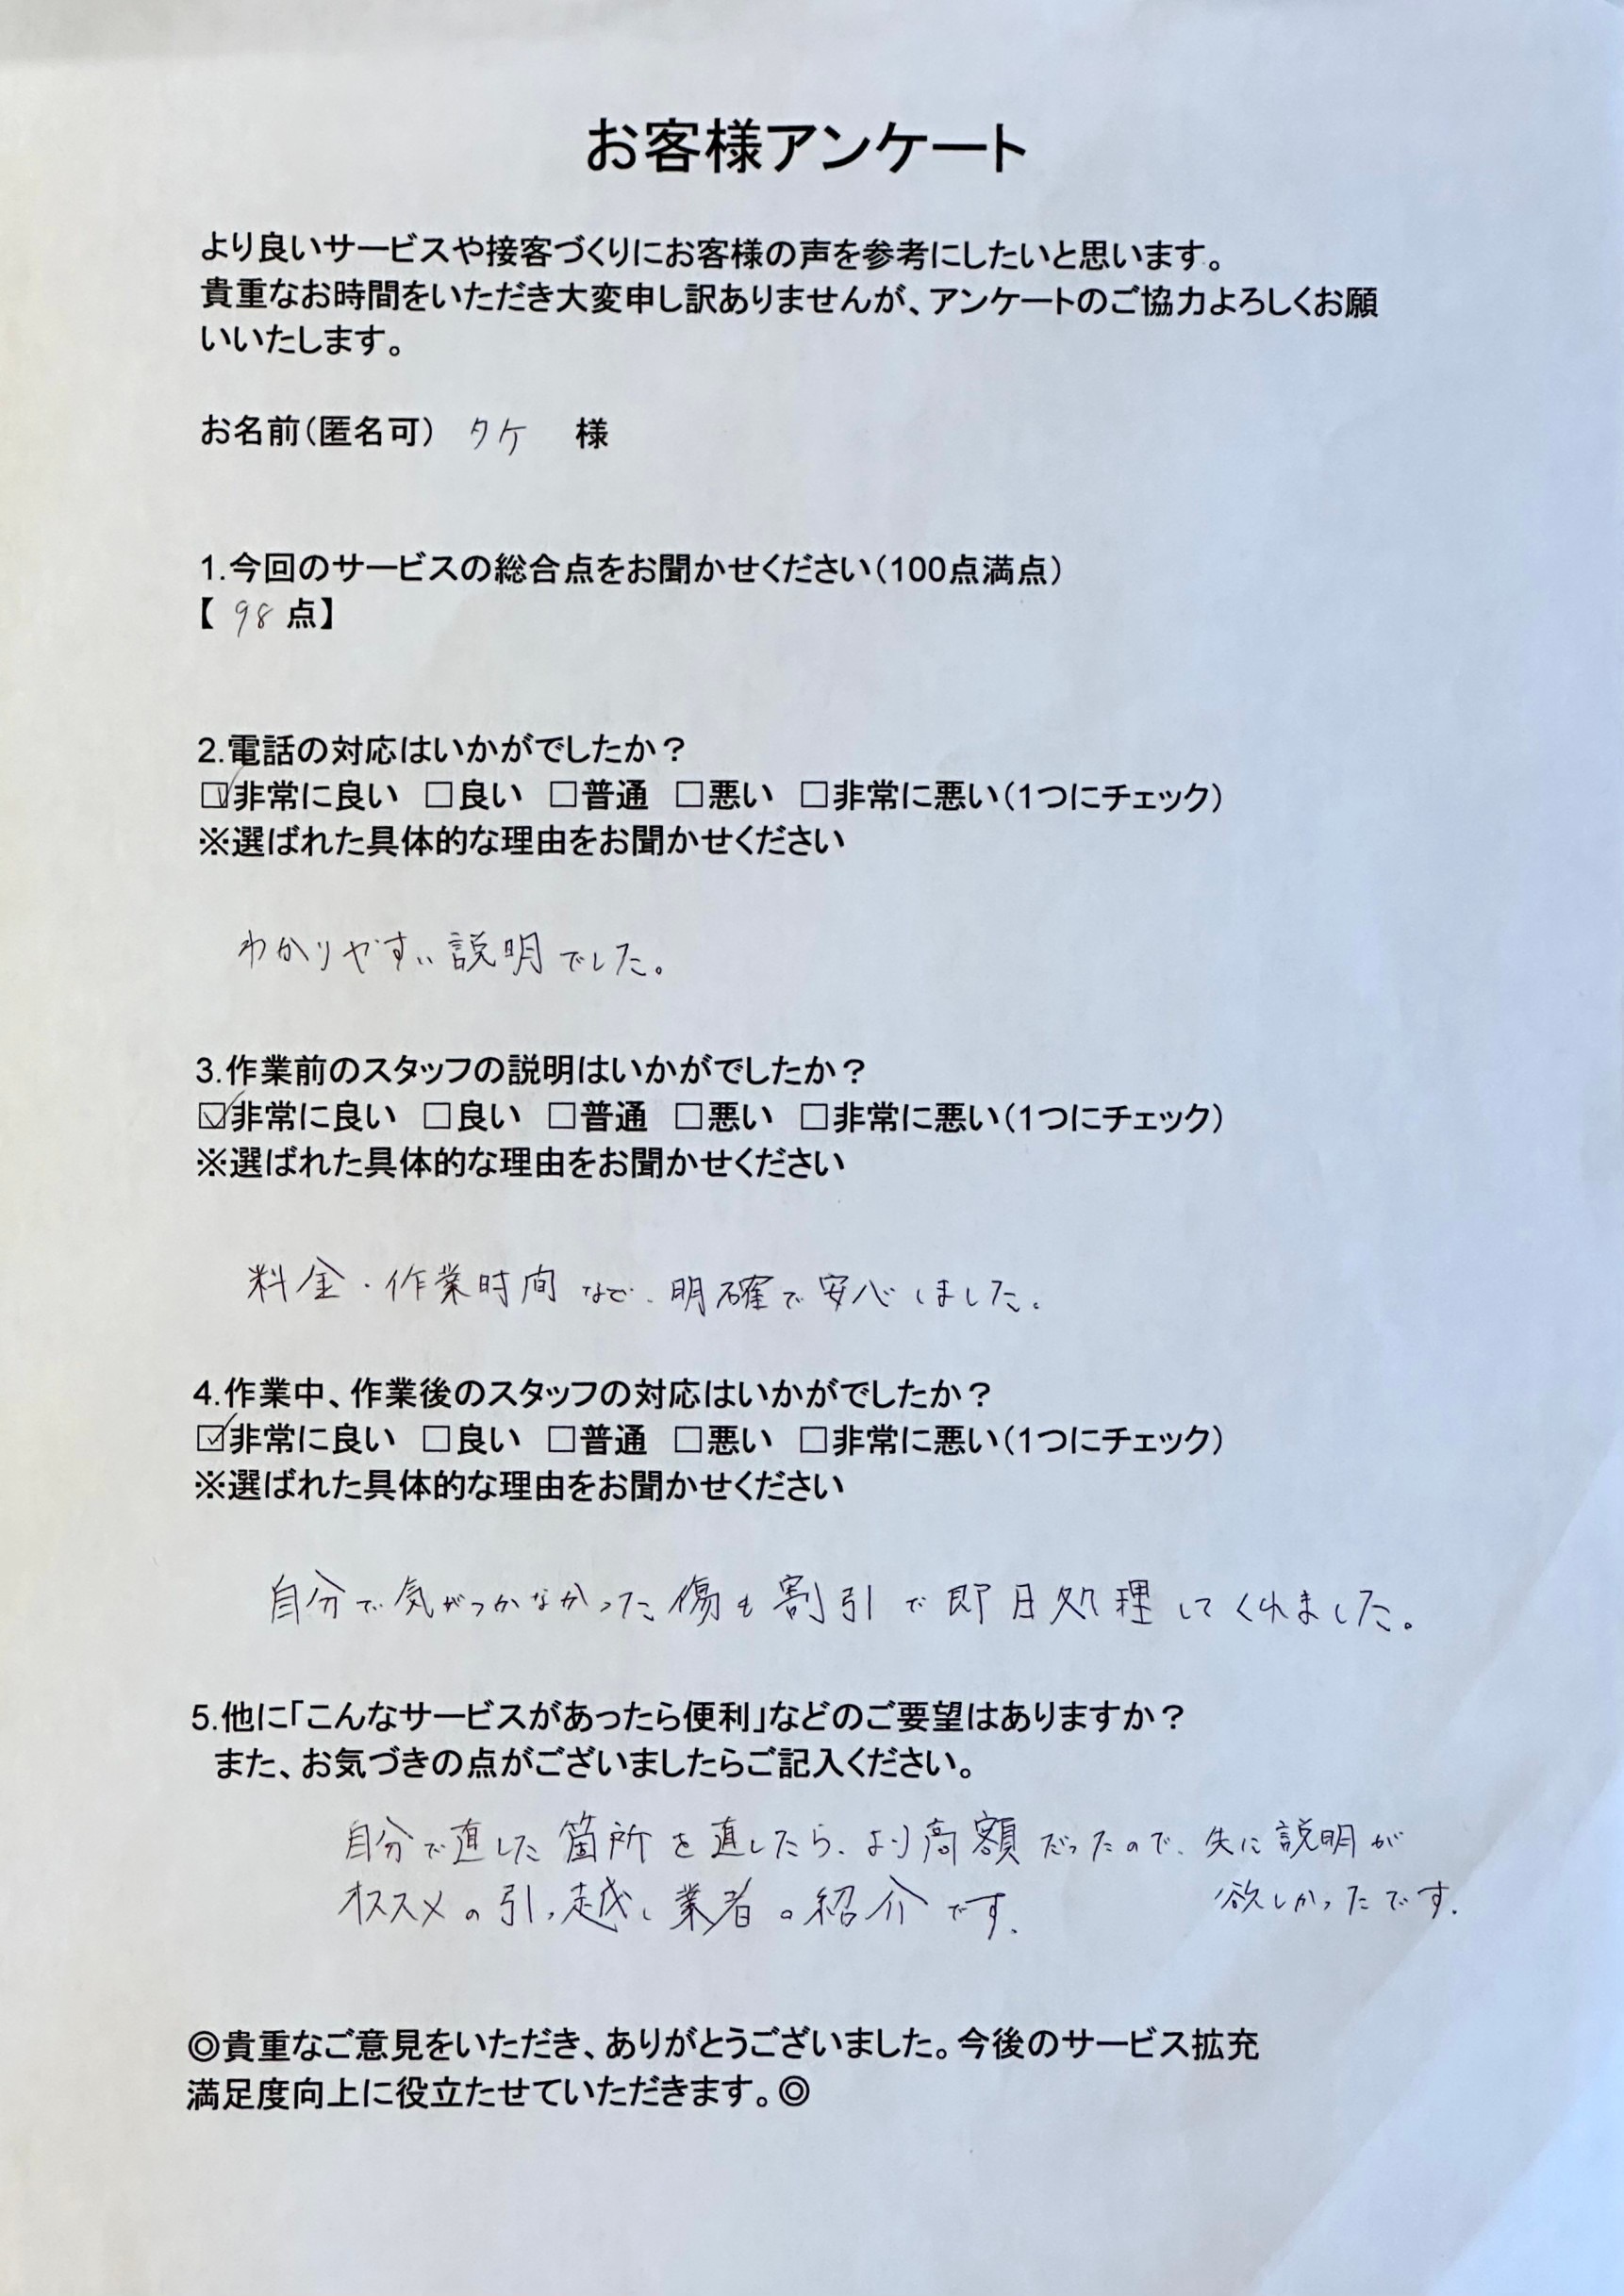 お客様アンケート
より良いサービスや接客づくりにお客様の声を参考にしたいと思います。
貴重なお時間をいただき大変申し訳ありませんが、アンケートのご協力よろしくお願
いいたします。
お名前(匿名可) タケ 様
1.今回のサービスの総合点をお聞かせください(100点満点)
【 98 点】
2.電話の対応はいかがでしたか?
☑非常に良い □良い □普通 □悪い □非常に悪い(1つにチェック)
※選ばれた具体的な理由をお聞かせください
わかりやすい説明でした。
3.作業前のスタッフの説明はいかがでしたか?
☑非常に良い □良い □普通 □悪い □非常に悪い(1つにチェック)
※選ばれた具体的な理由をお聞かせください
料金・作業時間など、明確で安心しました。
4.作業中、作業後のスタッフの対応はいかがでしたか?
☑非常に良い □良い □普通 □悪い □非常に悪い(1つにチェック)
※選ばれた具体的な理由をお聞かせください
自分で気がつかなかった傷も割引で即日処理してくれました。
5.他に「こんなサービスがあったら便利」などのご要望はありますか?
また、お気づきの点がございましたらご記入ください。
自分で直した箇所を直したら、より高額だったので、先に説明が
欲しかったです。
オススメの引っ越し業者の紹介です。
◎貴重なご意見をいただき、ありがとうございました。今後のサービス拡充
満足度向上に役立たせていただきます。◎